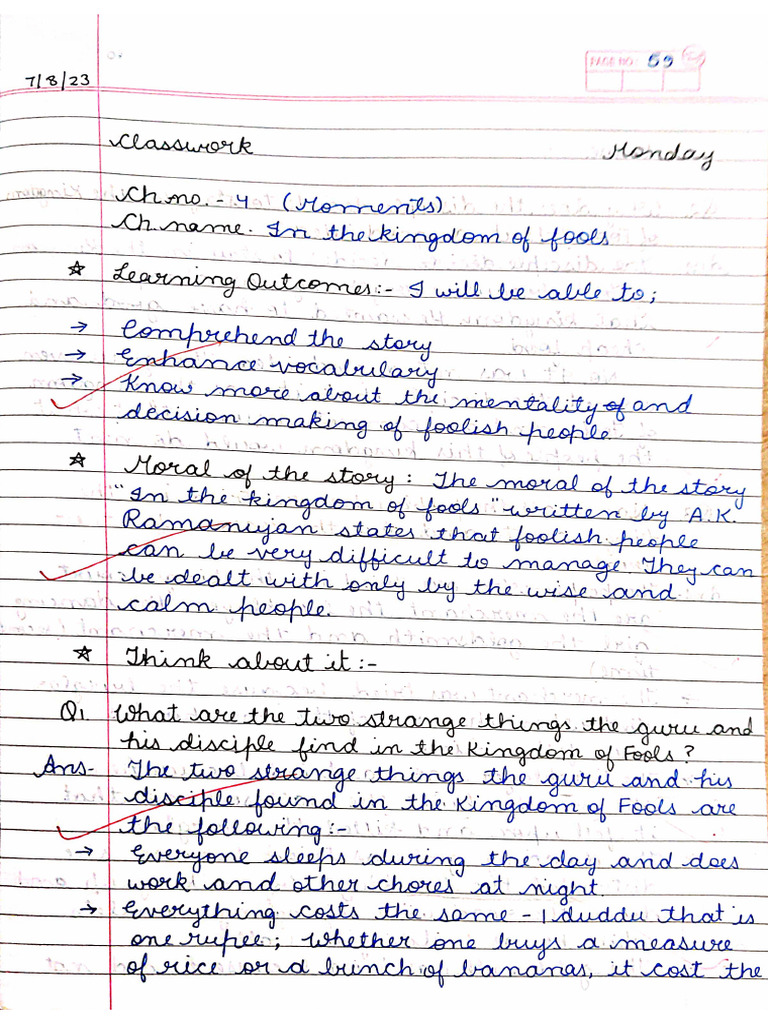 PAGE NO: 59
7/8/23
Classwork Monday
Ch no. - 4 (Moments)
Ch name. In the kingdom of fools
☆ Learning Outcomes:- I will be able to;
→ Comprehend the story
→ Enhance vocabulary
→ Know more about the mentality of and
decision making of foolish people.
☆ Moral of the story: The moral of the story
"In the kingdom of fools" written by A.K.
Ramanujan states that foolish people
can be very difficult to manage. They can
be dealt with only by the wise and
calm people.
☆ Think about it:-
Q1. What are the two strange things the guru and
his disciple find in the Kingdom of Fools?
Ans- The two strange things the guru and his
disciple found in the Kingdom of Fools are
the following:-
→ Everyone sleeps during the day and does
work and other chores at night.
→ Everything costs the same - 1 duddu that is
one rupee; whether one buys a measure
of rice or a bunch of bananas, it cost the